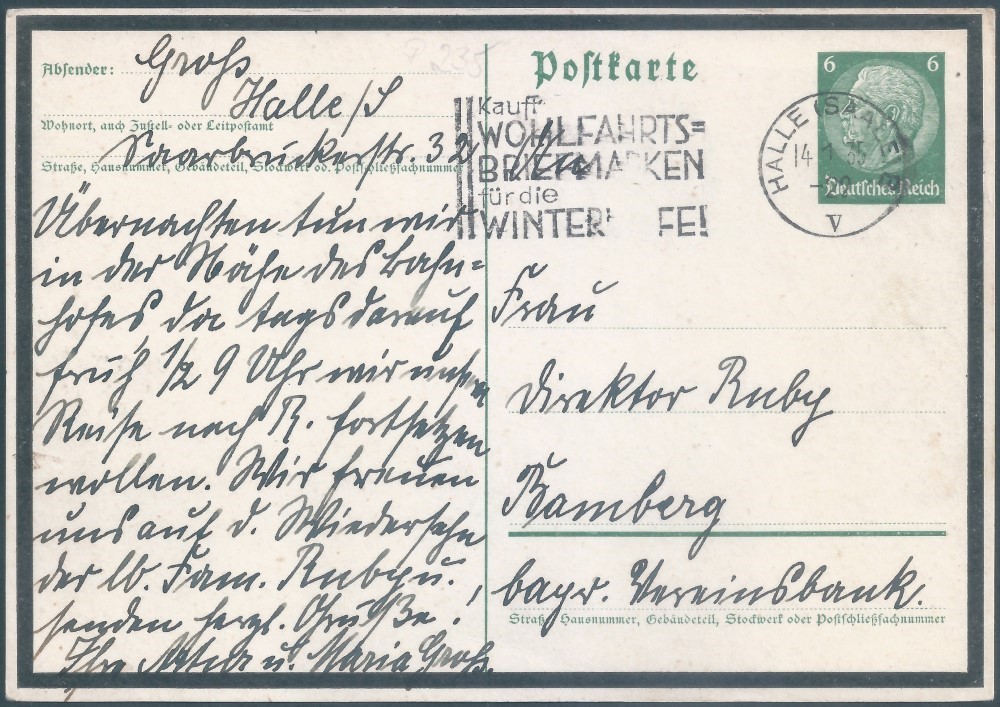 P 235
Absender: Groß
Halle/S
Wohnort, auch Zustell- oder Leitpostamt
Saarbrückerstr. 32
Straße, Hausnummer, Gebäudeteil, Stockwerk od. Postschließfachnummer
Übernachten tun wir
in der Nähe des Bahn=
hofes da tags darauf
früh 1/2 9 Uhr wir unsere
Reise nach R. fortsetzen
wollen. Wir freuen
uns auf d. Wiedersehn
der lb. Fam. Ruby u.
senden herzl. Grüße!
Ihre u. Maria Groß.
Postkarte
6 6
Deutsches Reich
HALLE (SAALE)
14 1 35
-20
V
Kauft
WOHLFAHRTS=
BRIEFMARKEN
für die
WINTERH FE!
Frau
Direktor Ruby
Bamberg
bayr. Vereinsbank.
Straße, Hausnummer, Gebäudeteil, Stockwerk oder Postschließfachnummer